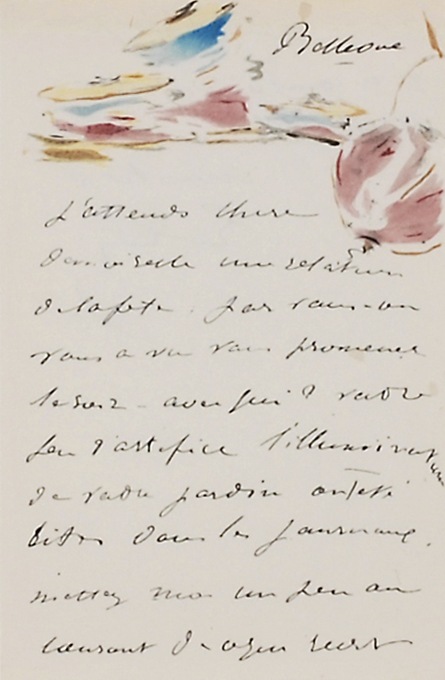 Bellevue
J'attends chère
demoiselle une relation
de la fête.
vous a vu vous promener
le soir - avec qui ? votre
feu d'artifice l'illumination
de votre jardin ont été
cités dans les journaux.
mettez moi un peu au
courant de ce qui